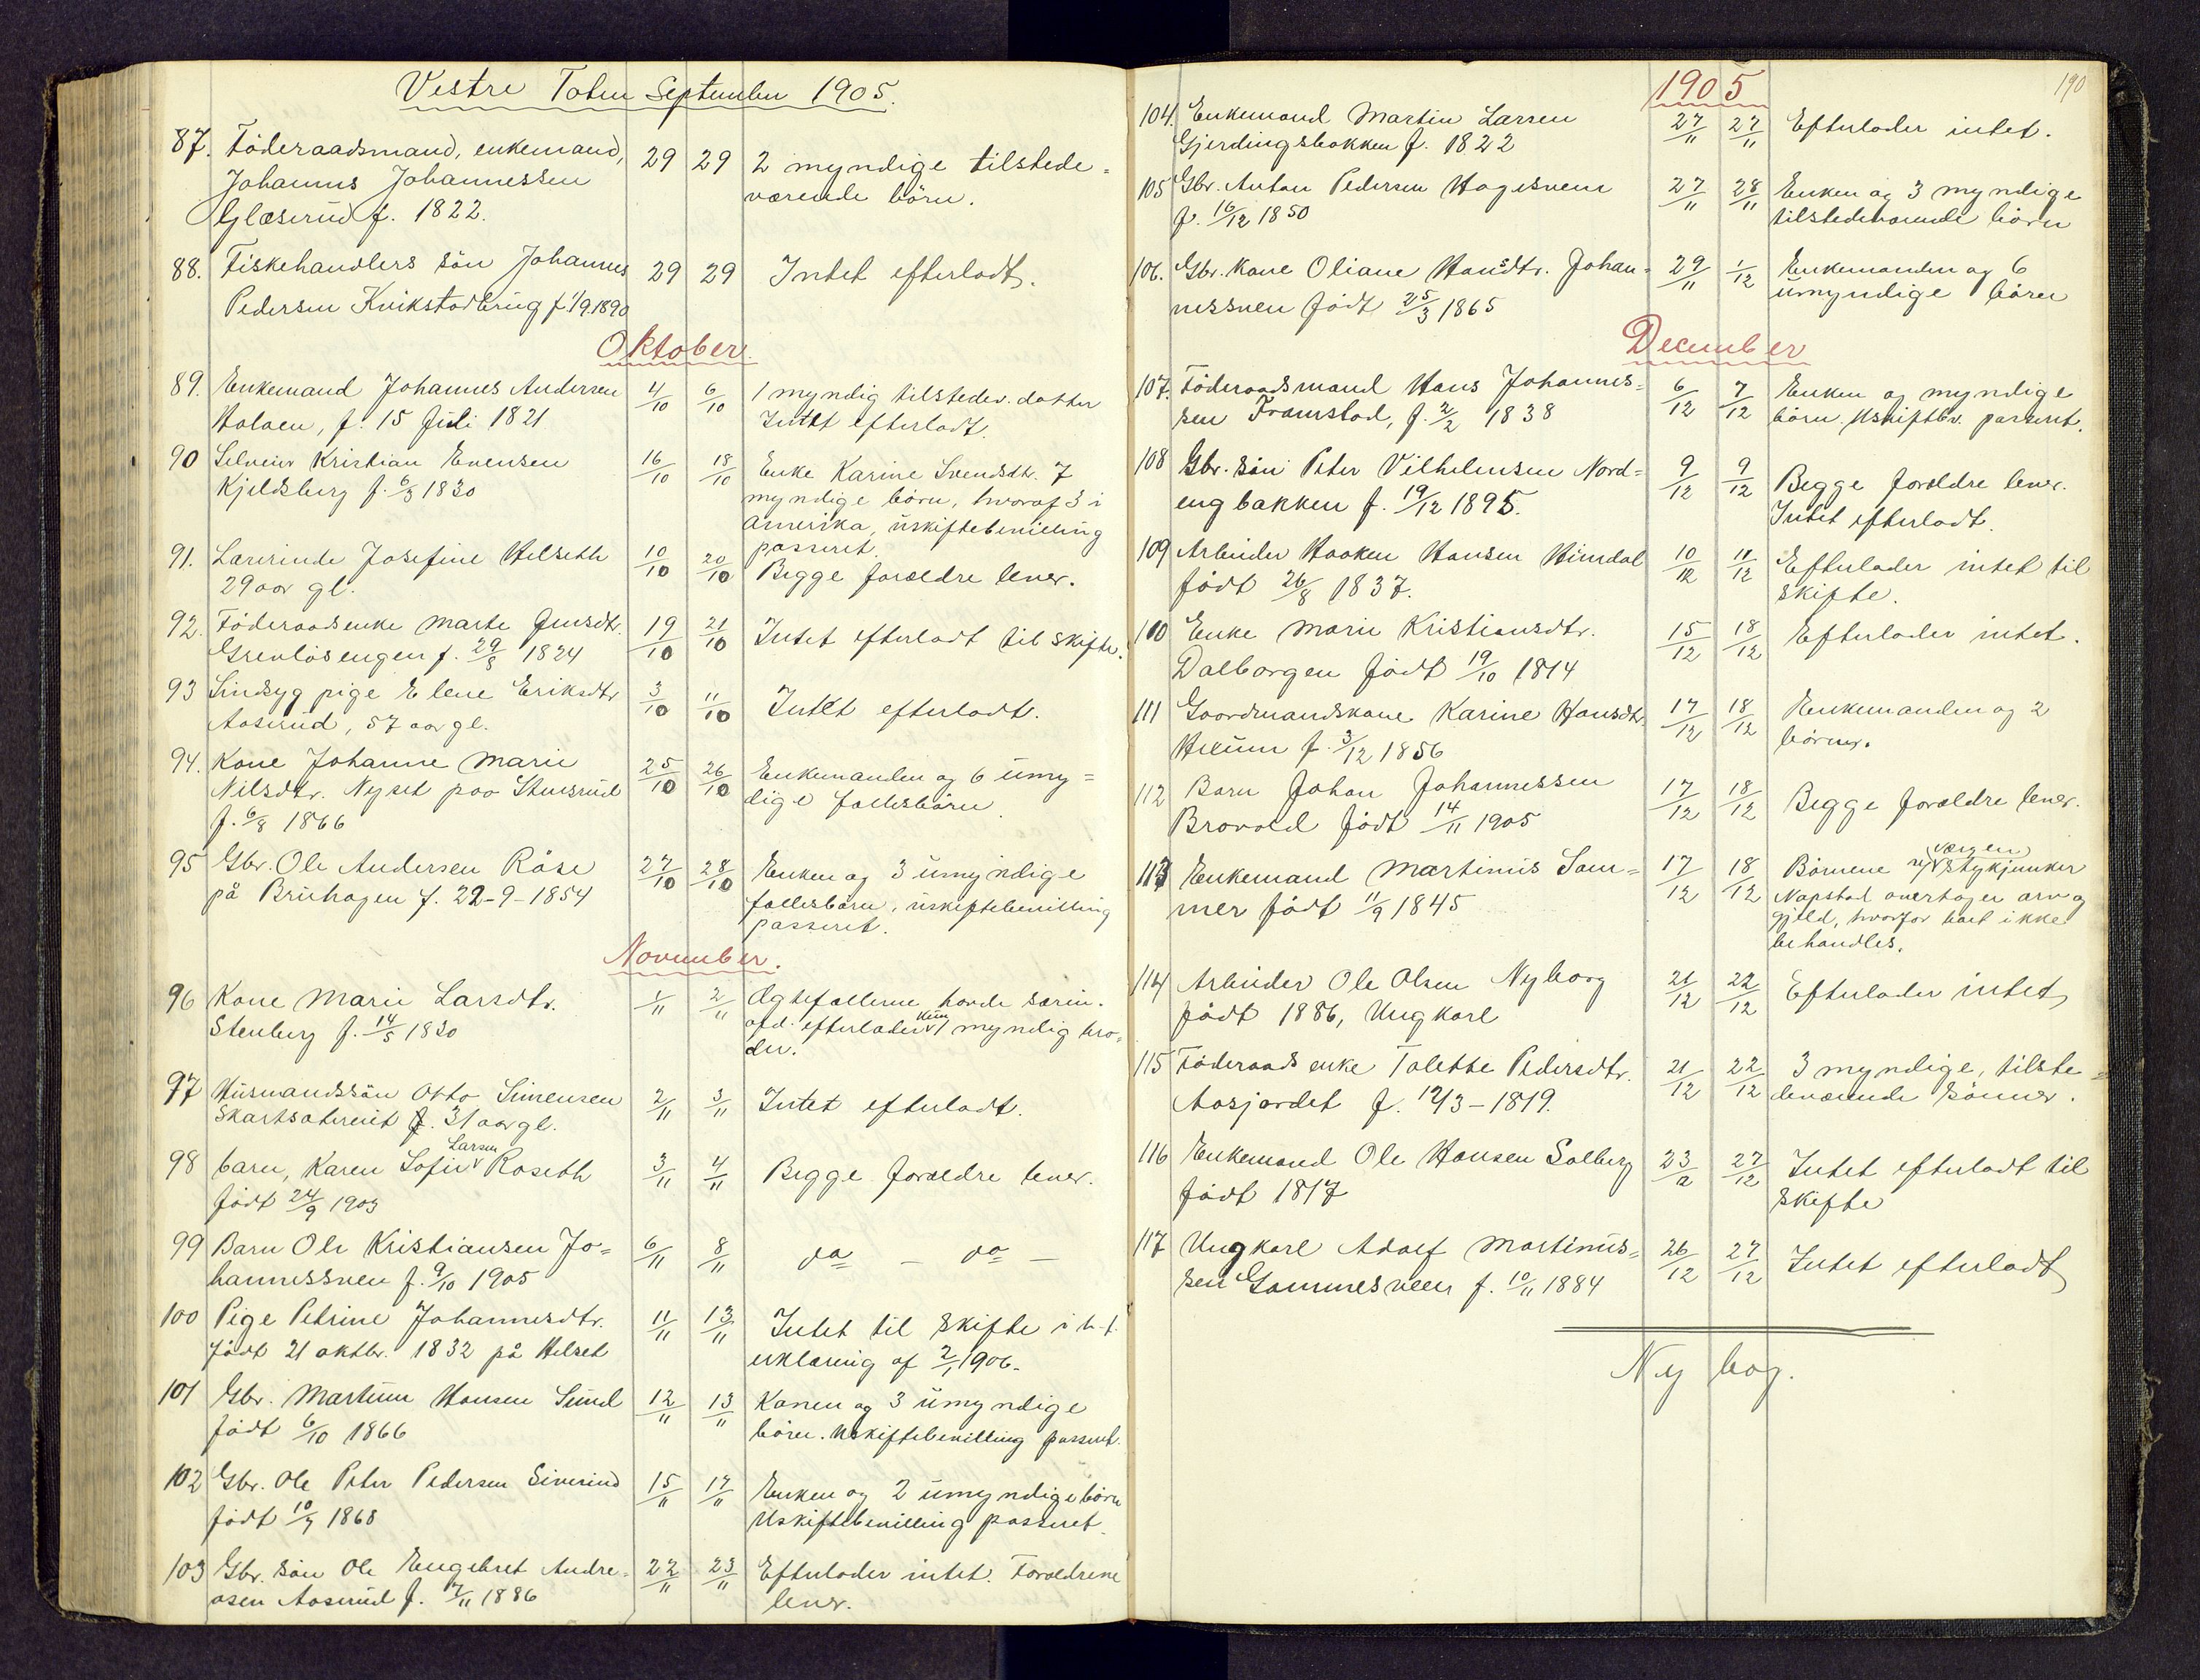 Vestre Toten September 1905.
87. Föderaadsmand, enkemand, 29 29 2 myndige tilstede=
Johannes Johannessen værende börn.
Glæserud f. 1822.
88. Fiskehandlers sön Johannes 29 29 Intet efterladt.
Pedersen Kvikstadbrug f 1/9.1890
Oktober.
89. Enkemand Johannes Andersen 4/10 6/10 1 myndig tilstedev. datter
f. 15 Juli 1821 Intet efterladt.
90 Kristian Evensen 16/10 18/10 Enke Karine Svendsdtr. 7
Kjeldsberg f. 6/3 1830 myndige börn, hvoraf 3 i
Amerika, uskiftebevilling
passeret.
91. Lærerinde Josefine Helseth 10/10 20/10 Begge forældre lever.
29 aar gl.
92. Föderaadsenke Marte Jensdtr. 19/10 21/10 Intet efterladt til skifte.
Grenlösengen f. 29/8 1824
93 Sindsyg pige Elene Eriksdtr 3/10 11/10 Intet efterladt.
Aaserud, 57 aar gl.
94. Kone Johanne Marie 25/10 26/10 Enkemanden og 6 umyn=
Nilsdtr. Nyset paa Stensrud dige fællesbörn.
f. 6/8 1866
95 Gbr. Ole Andersen Röise 27/10 28/10 Enken og 3 umyndige
på Bruhagen f. 22-9-1854 fællesbörn, uskiftebevilling
passeret.
November.
96 Kone Marie Larsdtr. 1/11 2/11 Ægtefællerne havde særei.
Stenberg f. 14/5 1830 afd. efterlader kun 1 myndig bro=
der.
97 Husmandssön Otto Simensen 2/11 3/11 Intet efterladt.
f. 31 aar gl.
98 barn, Karen Sofie Larsen Roseth 3/11 4/11 Begge forældre lever.
födt 24/9 1903
99 Barn Ole Kristiansen Jo= 6/11 8/11 do — do —
hannessveen f. 9/10 1905
100 Pige Petrine Johannesdtr. 11/11 13/11 Intet til skifte i h. t.
födt 21 oktbr. 1832 på Helset erklæring af 2/1 1906.
101 Gbr. Martinus Hansen Sund 12/11 13/11 Konen og 3 umyndige
födt 6/10 1866 börn. Uskiftebevilling passeret.
102 Gbr. Ole Peter Pedersen Siverud 15/11 17/11 Enken og 2 umyndige börn
födt 10/7 1868 Uskiftebevilling passeret.
103 Gbr. sön Ole Engebret Andre= 22/11 23/11 Efterlader intet. Forældrene
asen Aaserud f. 7/11 1886 lever.
190
1905
104. Enkemand Martin Larsen 27/11 27/11 Efterlader intet.
Gjerdingsbakken f. 1822
105 Gbr. Anton Pedersen Hagesveen 27/11 28/11 Enken og 3 myndige
f. 16/12 1850 tilstedeværende börn
106. Gbr. kone Oliane Hansdtr. Johan= 29/11 1/12 Enkemanden og 6
nessveen födt 25/3 1865 umyndige börn
December
107. Föderaadsmand Hans Johannes= 6/12 7/12 Enken og myndige
sen Framstad, f. 2/2 1838 börn. Uskiftbv. passeret.
108 Gbr. sön Peter Vilhelmsen Nord= 9/12 9/12 Begge forældre lever.
engbakken f. 19/12 1895. Intet efterladt.
109 Arbeider Haaken Hansen Himdal 10/12 11/12 Efterlader intet til
födt 26/8 1837. skifte.
110 Enke Marie Kristiansdtr. 15/12 18/12 Efterlader intet.
Dalborgen födt 19/10 1814
111 Gaardmandskone Karine Hansdtr. 17/12 18/12 Enkemanden og 2
f. 3/12 1856 börner.
112 Barn Johan Johannessen 17/12 18/12 Begge forældre lever.
Brovold födt 14/11 1905
113 Enkemand Martinus Som= 17/12 18/12 Börnene ved værgen Stykjunker
mer födt 11/9 1845 Napstad overtager arv og
gjæld, hvorfor boet ikke
behandles.
114 Arbeider Ole Olsen Nyborg 21/12 22/12 Efterlader intet
födt 1886, Ungkarl
115 Föderaads enke Talette Pedersdtr. 21/12 22/12 3 myndige, tilste=
Aasjordet f. 12/3-1819. deværende sönner.
116 Enkemand Ole Hansen Solberg 23/12 27/12 Intet efterladt til
födt 1817 skifte
117 Ungkarl Adolf Martinus= 26/12 27/12 Intet efterladt
sen Gammesveen f. 10/11 1884
Ny bog.